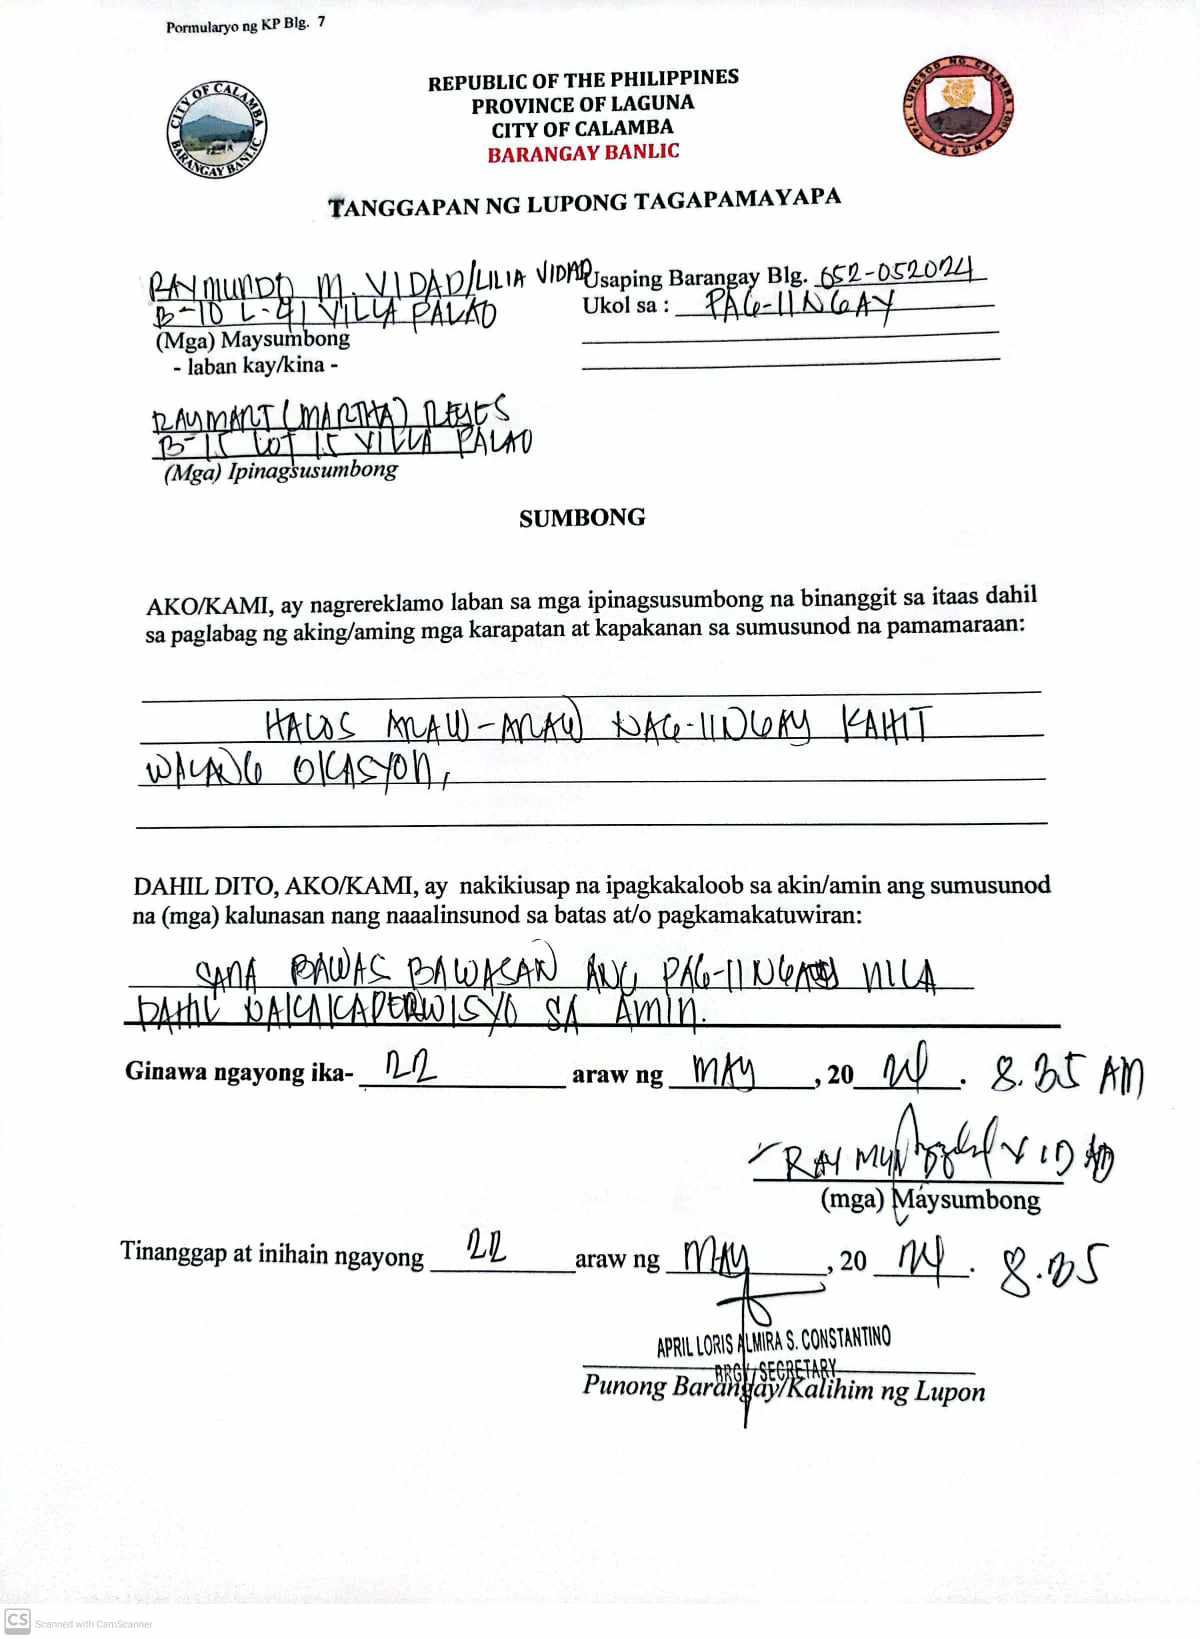 Pormularyo ng KP Blg. 7
REPUBLIC OF THE PHILIPPINES
PROVINCE OF LAGUNA
CITY OF CALAMBA
BARANGAY BANLIC
CITY OF CALAMBA
BARANGAY BANLIC
LUNGSOD NG CALAMBA
1742 LAGUNA
TANGGAPAN NG LUPONG TAGAPAMAYAPA
RAYMUNDO M. VIDAD/LILIA VIDAD Usaping Barangay Blg. 652-052024
B-10 L-41 VILLA PALAO Ukol sa : PAG-IINGAY
(Mga) Maysumbong
- laban kay/kina -
RAYMART (MARTHA) REYES
B-15 LOT 15 VILLA PALAO
(Mga) Ipinagsusumbong
SUMBONG
AKO/KAMI, ay nagrereklamo laban sa mga ipinagsusumbong na binanggit sa itaas dahil
sa paglabag ng aking/aming mga karapatan at kapakanan sa sumusunod na pamamaraan:
HALOS ARAW-ARAW NAG-IINGAY KAHIT
WALANG OKASYON,
DAHIL DITO, AKO/KAMI, ay nakikiusap na ipagkakaloob sa akin/amin ang sumusunod
na (mga) kalunasan nang naaalinsunod sa batas at/o pagkamakatuwiran:
SANA BAWAS BAWASAN ANG PAG-IINGAY NILA
DAHIL NAKAKAPERWISYO SA AMIN.
Ginawa ngayong ika- 22 araw ng MAY , 20 24 . 8.35 AM
RAYMUNDO VIDAD
(mga) Maysumbong
Tinanggap at inihain ngayong 22 araw ng MAY , 20 24 . 8.35
APRIL LORIS ALMIRA S. CONSTANTINO
BRGY SECRETARY
Punong Barangay/Kalihim ng Lupon
CS Scanned with CamScanner